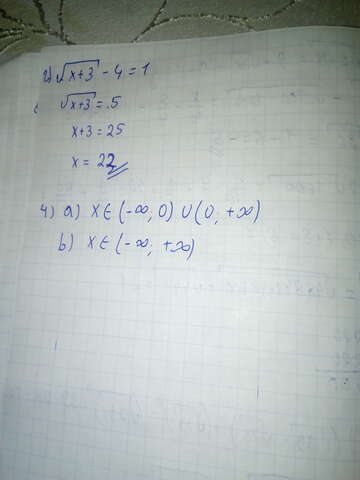 2) √x+3 - 4 = 1
√x+3 = 5
x+3 = 25
x = 22
4) a) x ∈ (-∞; 0) ∪ (0; +∞)
b) x ∈ (-∞; +∞)